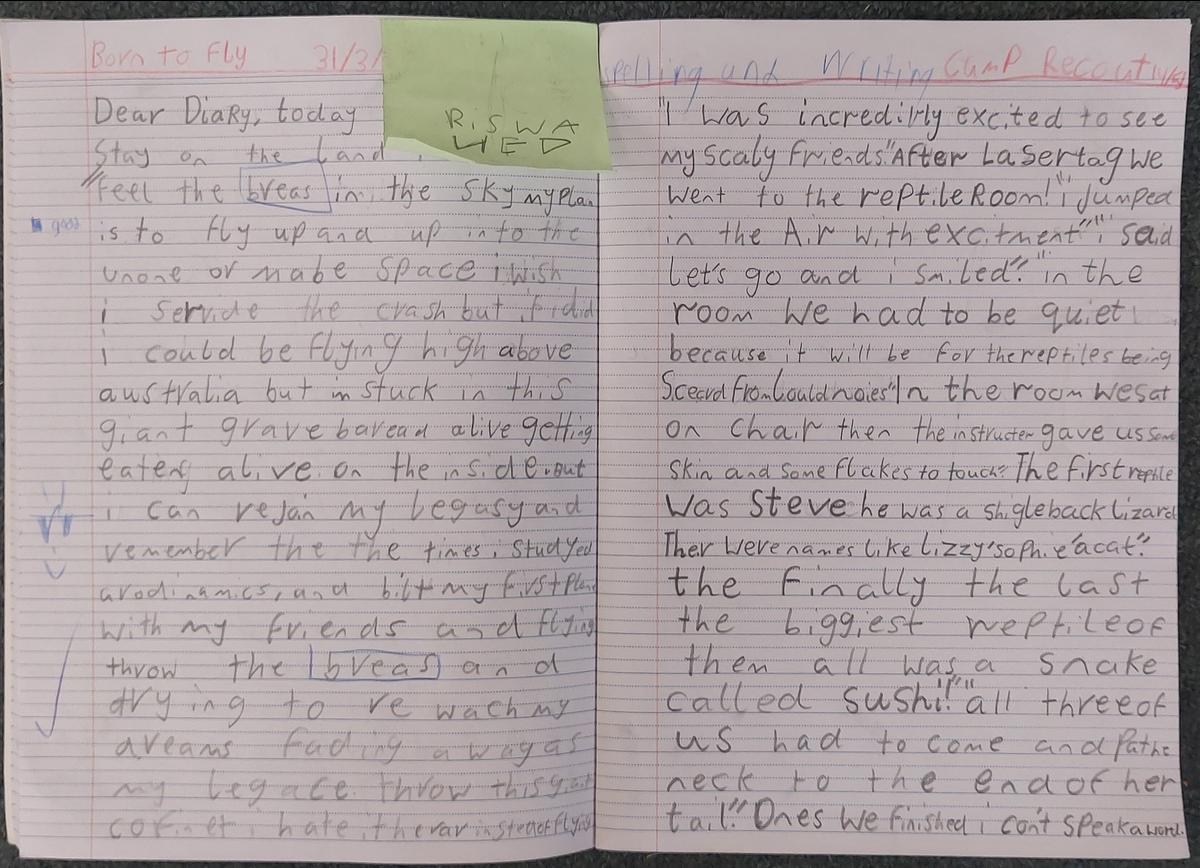 Born to Fly 31/3/
Dear Diary, today
Stay on the Land
feel the breas in the sky my plan
good
is to fly up and up into the
unone or mabe space i wish
i servide the crash but if i did
i could be flying high above
australia but im stuck in this
giant grave baread alive getting
eateng alive on the inside. but
i can rejan my legasy and
remember the the times i studyed
arodinamics, and bilt my first plane
with my friends and flying
throw the breas and
drying to re wach my
dreams fading away as
my legace throw this giat
cofinet i hate it herar insteot of flying
RiSWA
HED
spelling and Writing Camp Recout
"I was incredirly excited to see
my scaly friends." After Lasertag we
went to the reptile Room! "i jumped
in the Air with excitment" "i said
Let's go and i smiled." "in the
room We had to be quiet
because it will be for the reptiles being
Sceard from Could noies" In the room we sat
on chair then the instructer gave us some
skin and some flakes to touch? The first reptile
was Steve he was a shigleback lizard
Ther were names like Lizzy "sophie "acat."
the finally the last
the biggiest reptile of
them all was a snake
called sushi!" "all three of
us had to come and pat he
neck to the end of her
tail." Ones we finished i con't speak a word.